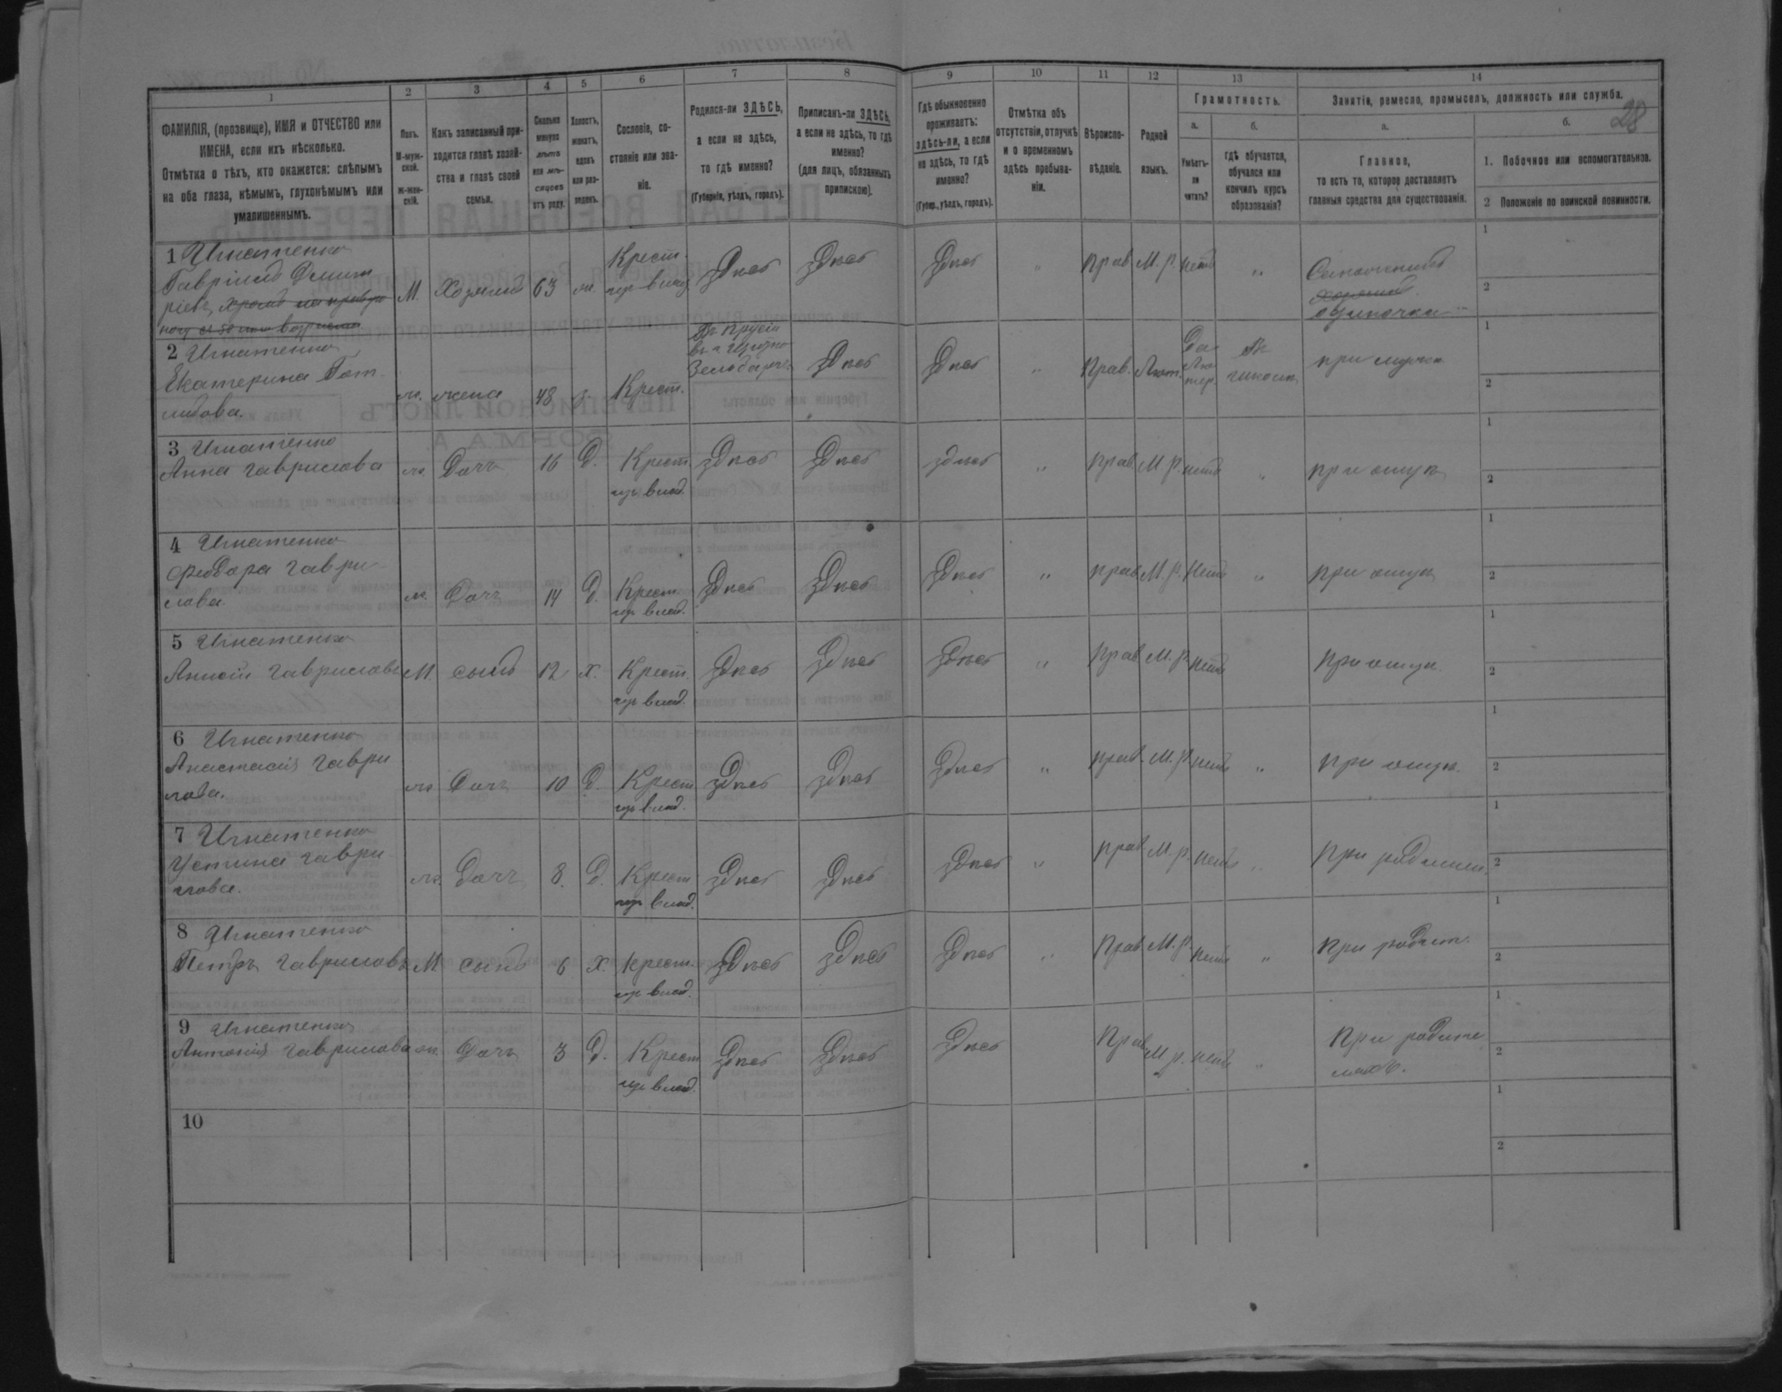 28
1 2 3 4 5 6 7 8 9 10 11 12 13 14
ФАМИЛІЯ, (прозвище), ИМЯ и ОТЧЕСТВО или
ИМЕНА, если ихъ нѣсколько.
Отмѣтка о тѣхъ, кто окажется: слѣпымъ
на оба глаза, нѣмымъ, глухонѣмымъ или
умалишеннымъ.
Полъ.
М-муж-
ской.
Ж-жен-
скій.
Какъ записанный при-
ходится главѣ хозяй-
ства и главѣ своей
семьи.
Сколько
минуло
лѣтъ
или мѣ-
сяцевъ
отъ роду.
Холостъ,
женатъ,
вдовъ
или раз-
веденъ.
Сословіе, со-
стояніе или зва-
ніе.
Родился-ли ЗДѢСЬ,
а если не здѣсь,
то гдѣ именно?
(Губернія, уѣздъ, городъ).
Приписанъ-ли ЗДѢСЬ,
а если не здѣсь, то гдѣ
именно?
(для лицъ, обязанныхъ
припискою).
Гдѣ обыкновенно
проживаетъ:
здѣсь-ли, а если
не здѣсь, то гдѣ
именно?
(Губер., уѣздъ, городъ).
Отмѣтка объ
отсутствіи, отлучкѣ
и о временномъ
здѣсь пребыва-
ніи.
Вѣроиспо-
вѣданіе.
Родной
языкъ.
Грамотность.
а.
Умѣетъ-
ли
читать?
б.
гдѣ обучается,
обучался или
кончилъ курсъ
образованія?
Занятіе, ремесло, промыселъ, должность или служба.
а.
Главное,
то есть то, которое доставляетъ
главныя средства для существованія.
б.
1. Побочное или вспомогательное.
2 Положеніе по воинской повинности.
1 Игнатенко
Гавріилъ Дмит
ріевъ
М. Хозяинъ 63 ж. Крест. Здѣсь Здѣсь Здѣсь " Прав М.р. нѣтъ "
1
2
2 Игнатенко
Екатерина Гот
либова.
ж. жена 48 з. Крест. Здѣсь Здѣсь " Прав. при мужѣ
1
2
3 Игнатенко
Анна Гаврилова
ж. Дочь 16 Д. Крест. Здѣсь Здѣсь здѣсь " Прав М.р. нѣтъ " при отцѣ
1
2
4 Игнатенко
Феодора Гаври
лова
ж. Дочь 14 Д. Крест. Здѣсь Здѣсь Здѣсь " прав М.р. Нѣтъ " при отцѣ
1
2
5 Игнатенко
Гавриловъ
М сынъ 12 х. Крест. Здѣсь Здѣсь Здѣсь " Прав М.р. нѣтъ При отцѣ
1
2
6 Игнатенко
Анастасія Гаври
лова.
ж. Дочь 10 Д. Крест Здѣсь здѣсь Здѣсь " прав. М.р. нѣтъ " при отцѣ.
1
2
7 Игнатенко
Устина Гаври
лова.
ж. Дочь 8. Д. Крест Здѣсь Здѣсь здѣсь " прав М.р. нѣтъ "
1
2
8 Игнатенко
Петръ Гавриловъ
М сынъ 6 Х. крест. Здѣсь Здѣсь Здѣсь " Прав М.р. нѣтъ " При родит.
1
2
9 Игнатенко
Антонія Гаврилова
ж. Дочь 3 Д. Крест Здѣсь Здѣсь Здѣсь Прав М.р. нѣтъ " При родите
ляхъ.
1
2
10
1
2